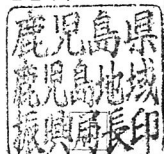 鹿児島県
鹿児島地域
振興局長印